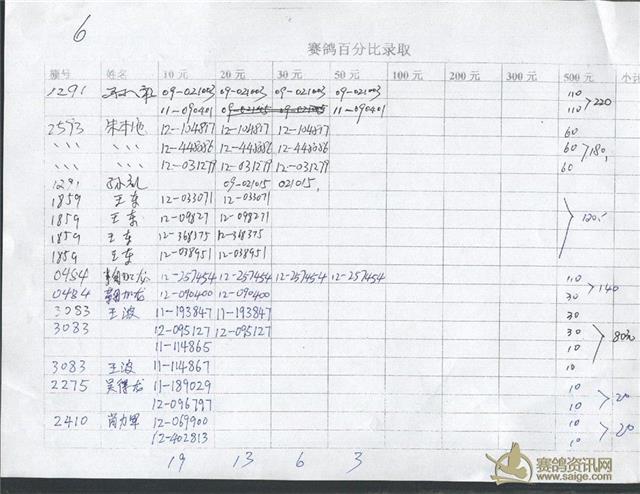 6
赛鸽百分比录取
棚号 姓名 10元 20元 30元 50元 100元 200元 300元 500元 小计
1291 09-021003 09-021003 09-021003 09-021003 110
11-090401 11-090401 110 >220
2573 12-104817 12-104817 12-104817 60
〃 〃 12-448686 12-448686 12-448686 60 >180
〃 〃 12-031279 12-031279 12-031279 60
1291 09-021015 021015
1859 王东 12-033071 12-033071
1859 王东 12-09827 12-098271
1859 王东 12-368375 12-368375
1859 王东 12-038951 12-038951
0484 12-257454 12-257454 12-257454 12-257454 110
0484 12-090400 12-090400 30 >140
3083 王波 11-193847 11-193847 30
3083 12-095127 12-095127 30
11-114865 10
3083 王波 11-114867 10
2275 吴得龙 11-189029 10
12-096797 10 >20
2410 肖力军 12-069900 10
12-402813 10 >20
19 13 6 3
赛鸽资讯网
www.saige.com